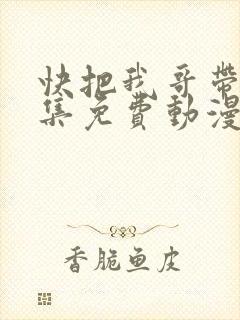 快把我哥带
集免費動漫
香脆鱼皮